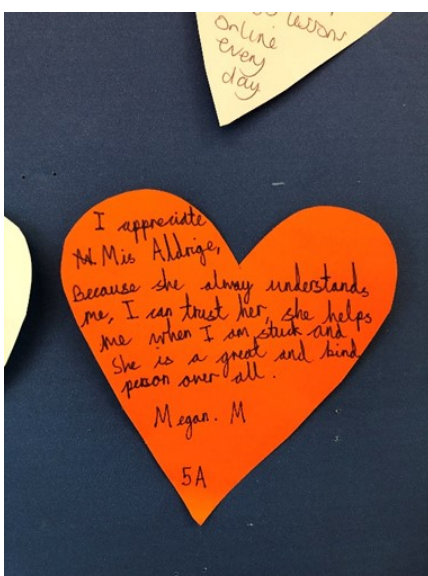 lessons
online
every
day
I appreciate
Mis Aldrige,
Because she alway understands
me, I can trust her, she helps
me when I am stuck and
She is a great and kind
person over all.
Megan. M
5A